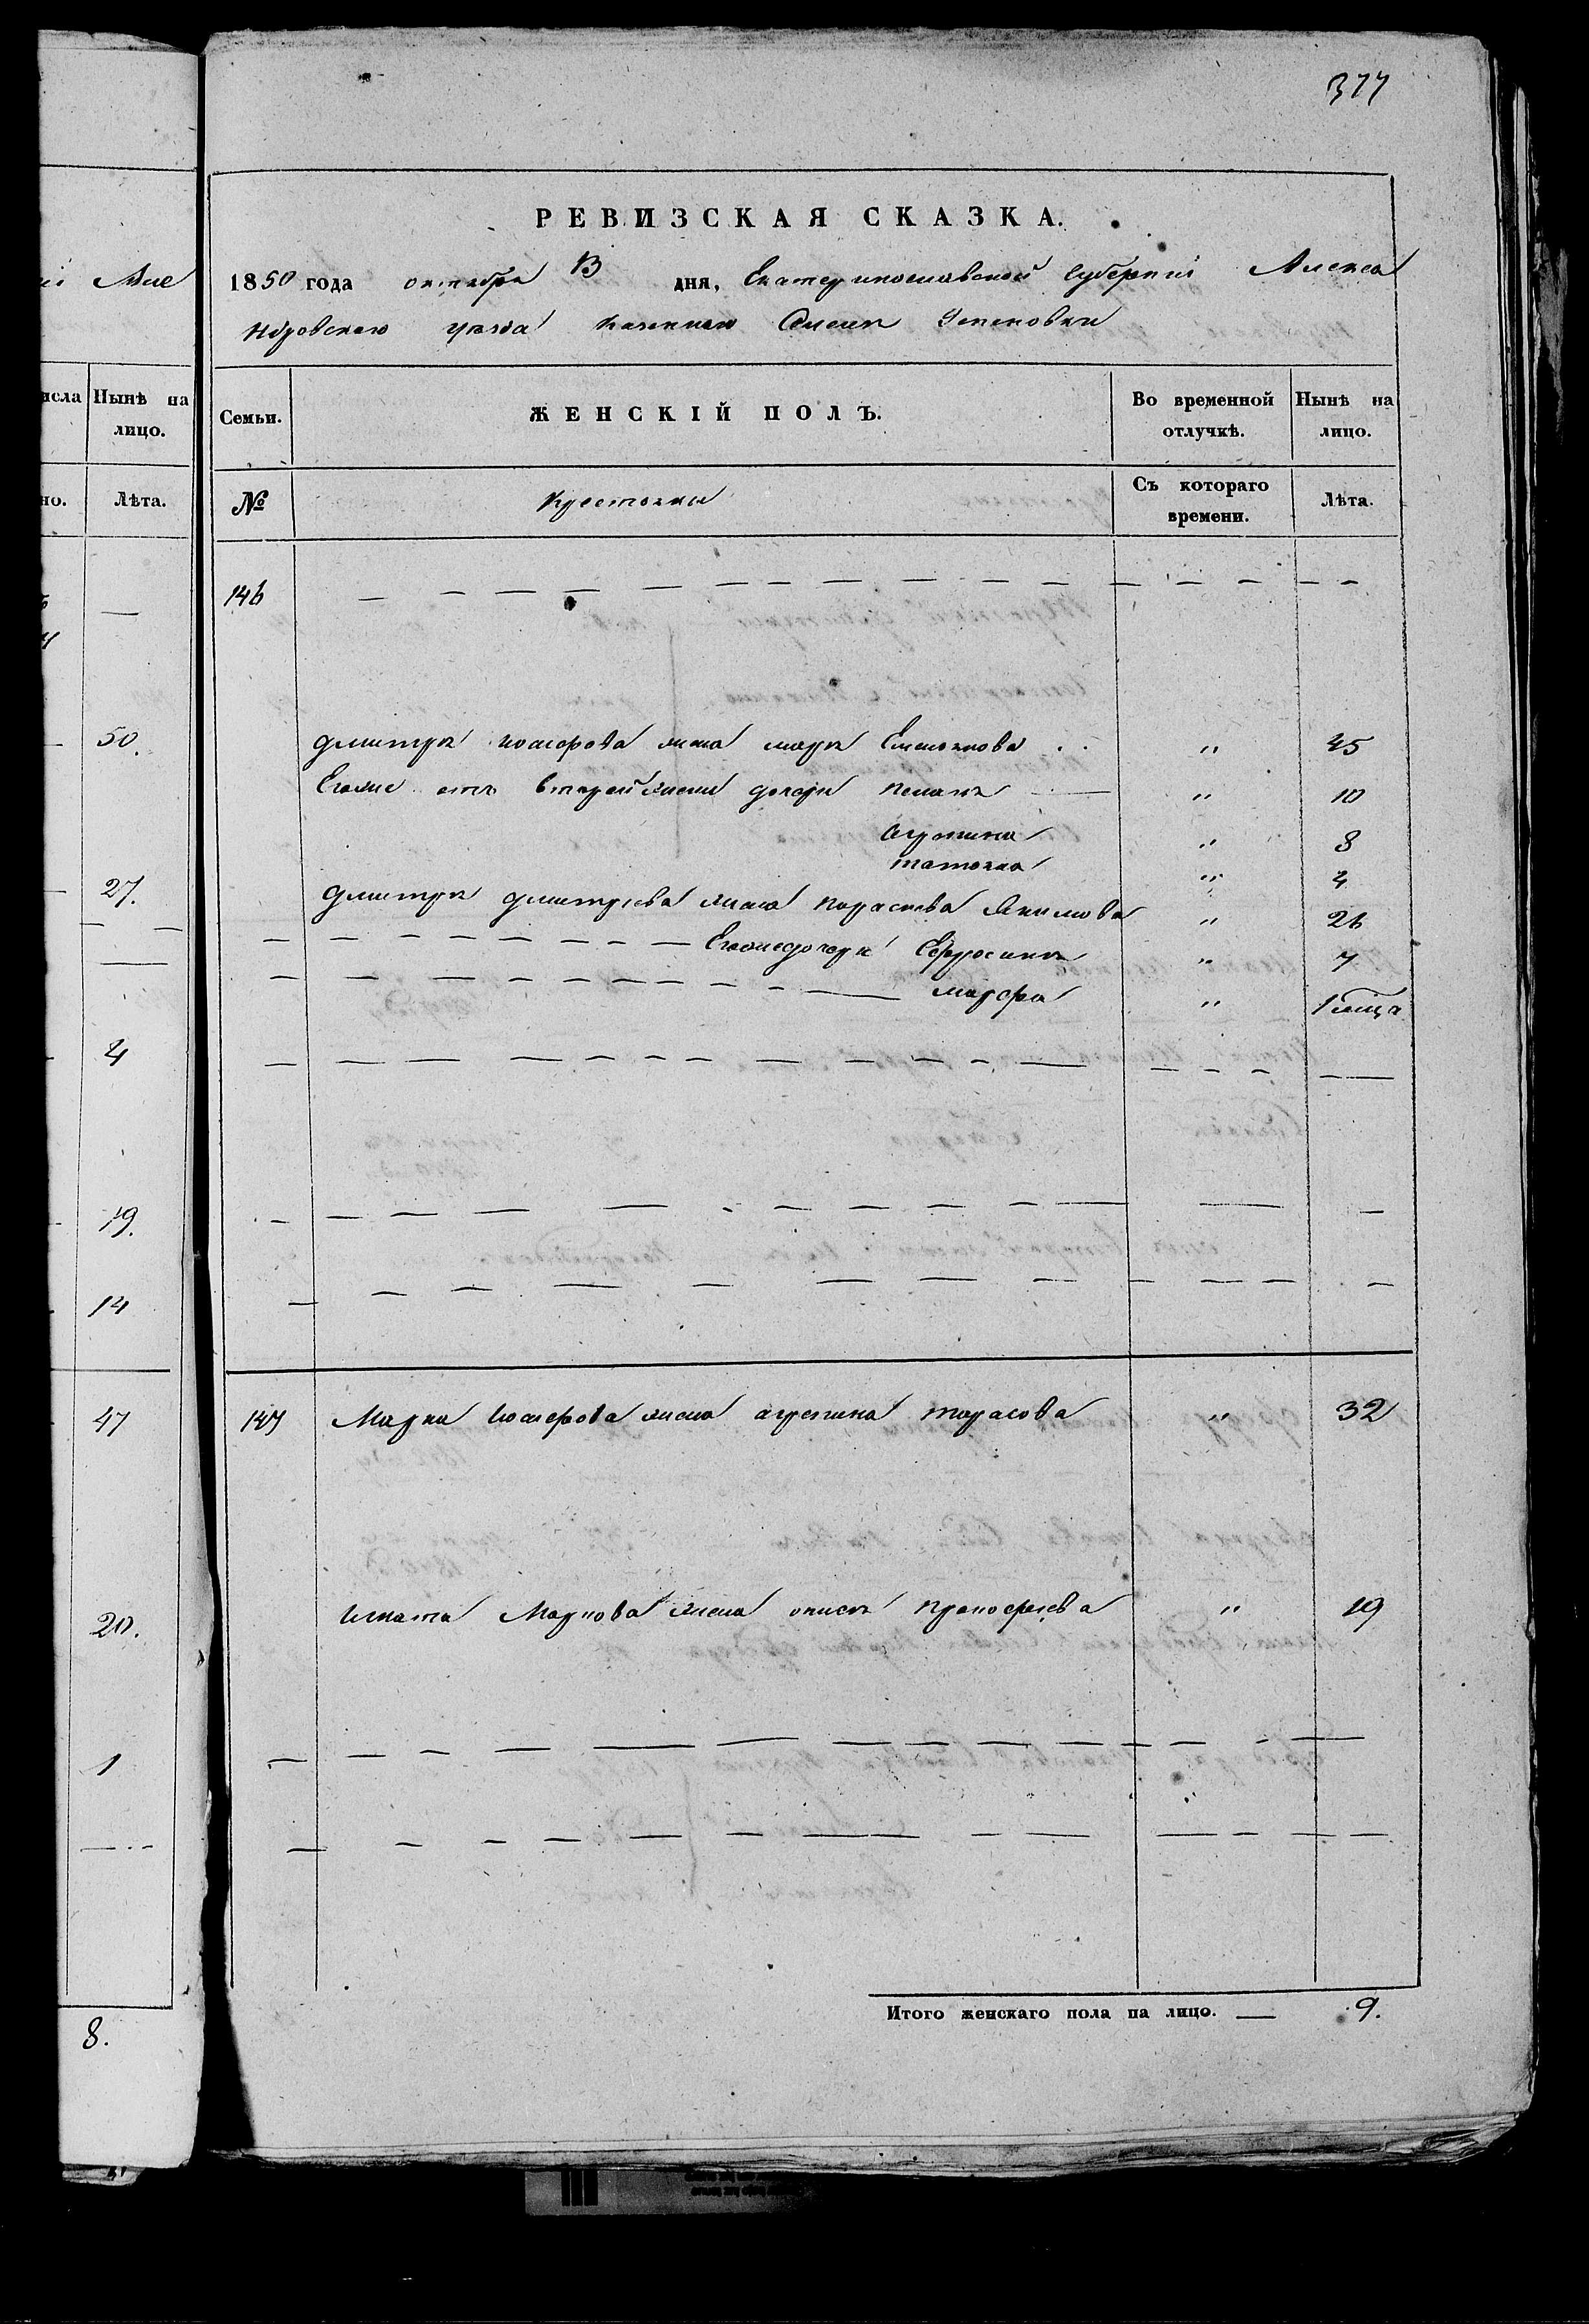 377
РЕВИЗСКАЯ СКАЗКА.
1850 года октября 13 дня, Екатеринославской Губернии Алекса
ндровского уезда казенной
Семьи.
ЖЕНСКІЙ ПОЛЪ.
Во временной отлучкѣ.
Нынѣ на лицо.
№
Крестьяне
Съ котораго времени.
Лѣта.
146
Дмитрія жена марія Емельянова " 45
Егоже отъ второй жены дочери " 10
агрипина " 8
татьяна " 4
Дмитрія дмитріева жена параскева Якимова " 26
Егоже дочери Ефросинія " 7
марфа " 1 месяца
147 Марка жена агрепина тарасова " 32
игната Маркова жена прокофіева " 19
Итого женскаго пола на лицо. — 9.
Нынѣ на лицо.
Лѣта.
50.
27.
4
19.
14
47
20.
1
8.